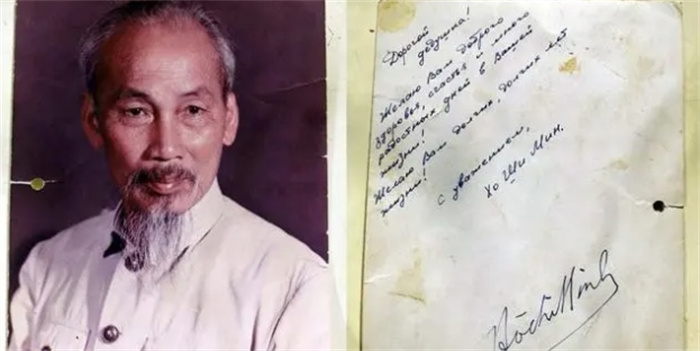 Дорогой
дедушка!
Желаю Вам доброго
здоровья, счастья и много
радостных дней в Вашей
жизни!
Желаю Вам долгих, долгих лет
жизни!
С уважением,
Хо Ши Мин.
Hồ Chí Minh